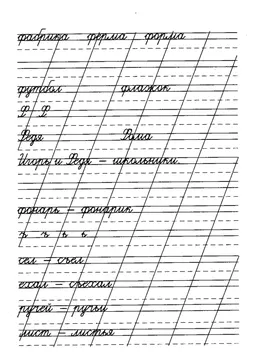 фабрика ферма форма
футбол флажок
Ф Ф
Федя Фома
Игорь и Федя – школьники.
фонарь – фонарик
ъ ъ ь ь
сел – съел
ехал – съехал
ручей – ручьи
лист – листья